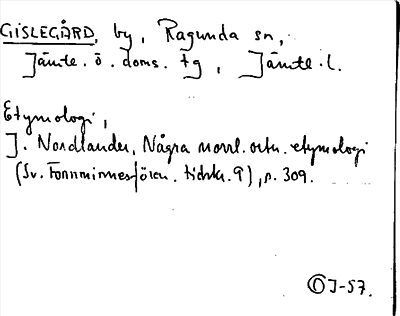 GISLEGÅRD, by, Ragunda sn,
Jämte. ö. doms. tg, Jämtl.
Etymologi,
J. Nordlander, Några norrl. ortn. etymologi
(Sv. Fornminnesfören. tidskr. 9), s. 309.
OJ-57.